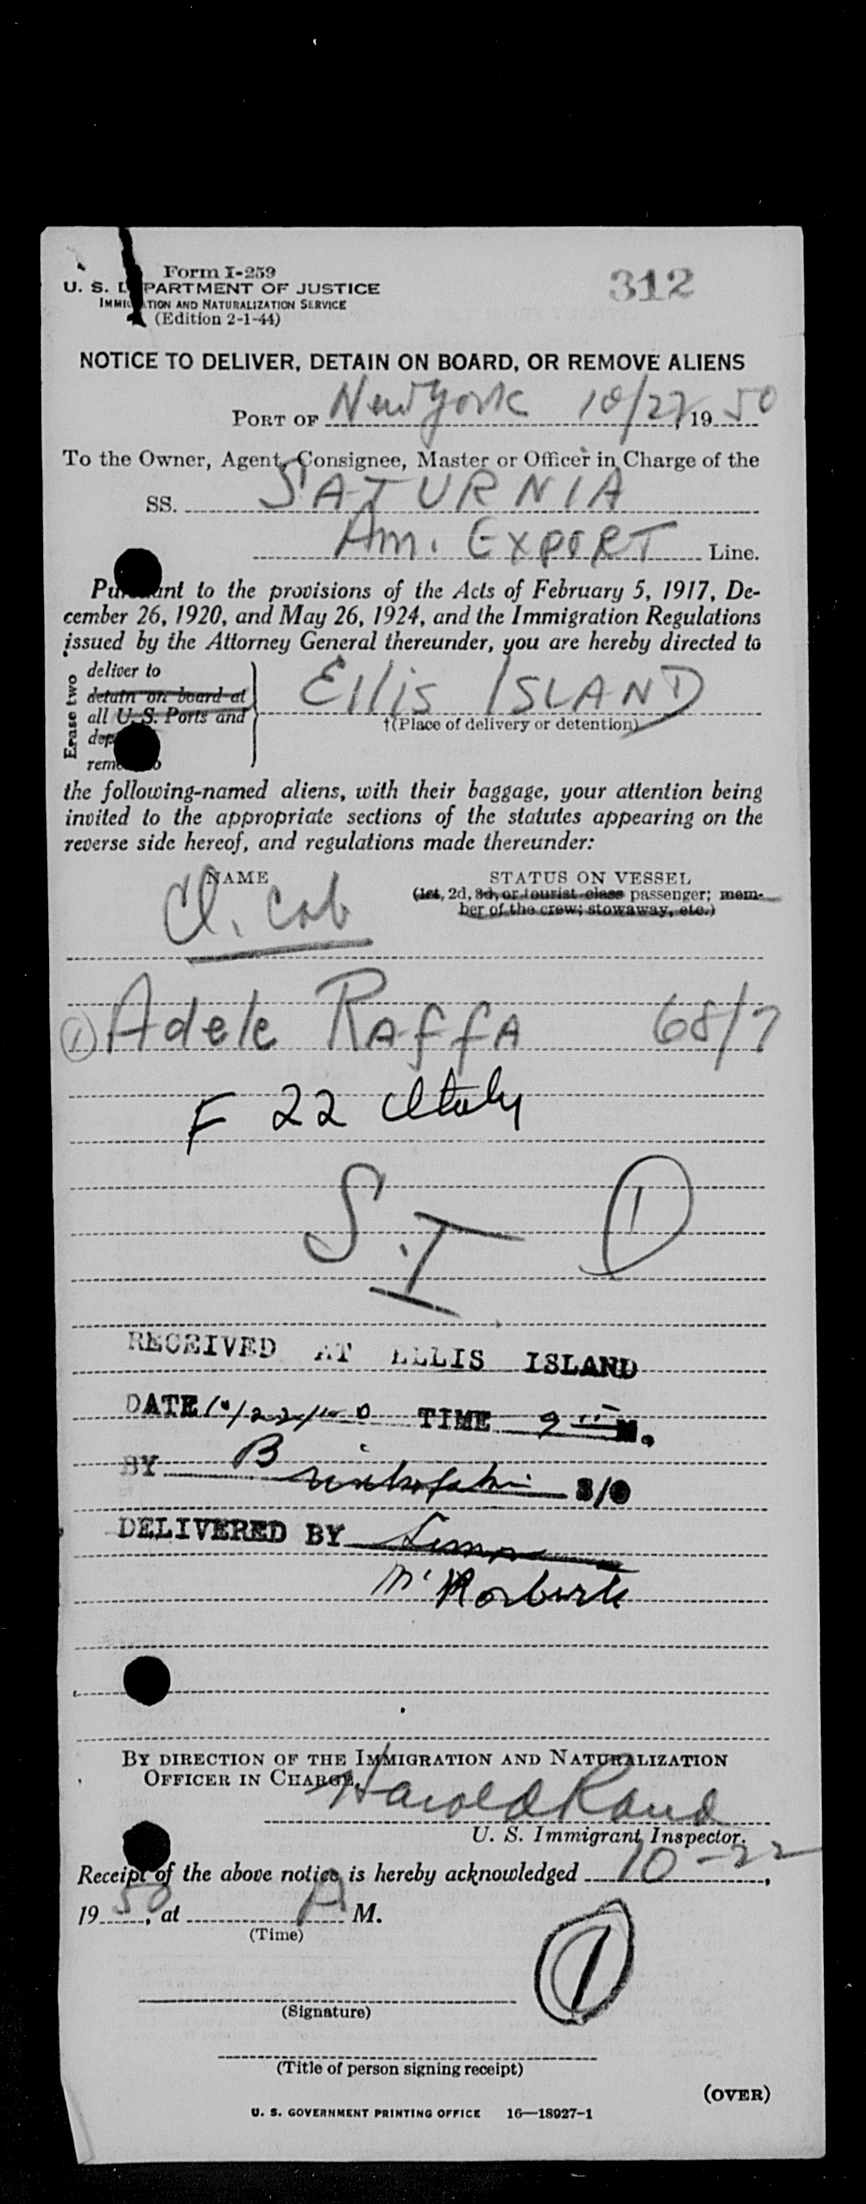 Form I-259
312
U. S. DEPARTMENT OF JUSTICE
IMMIGRATION AND NATURALIZATION SERVICE
(Edition 2-1-44)
NOTICE TO DELIVER, DETAIN ON BOARD, OR REMOVE ALIENS
PORT OF New York 10/22, 19 50
To the Owner, Agent, Consignee, Master or Officer in Charge of the
SS. SATURNIA
Am. EXPORT Line.
Pursuant to the provisions of the Acts of February 5, 1917, De-
cember 26, 1920, and May 26, 1924, and the Immigration Regulations
issued by the Attorney General thereunder, you are hereby directed to
Erase two
deliver to
detain on board at
all U. S. Ports and
Ellis ISLAND
†(Place of delivery or detention)
the following-named aliens, with their baggage, your attention being
invited to the appropriate sections of the statutes appearing on the
reverse side hereof, and regulations made thereunder:
NAME
STATUS ON VESSEL
(1st, 2d, 3d, or tourist class passenger; mem-
ber of the crew; stowaway, etc.)
Cl. Cab
1 Adele RAffA 68/7
F 22 Italy
S.I 1
RECEIVED AT ELLIS ISLAND
DATE 10/22/50 TIME 9 M.
BY S/O
DELIVERED BY
BY DIRECTION OF THE IMMIGRATION AND NATURALIZATION
OFFICER IN CHARGE,
Harold Rand
U. S. Immigrant Inspector.
Receipt of the above notice is hereby acknowledged 10-22,
19 50, at A M.
(Time)
1
(Signature)
(Title of person signing receipt)
(OVER)
U. S. GOVERNMENT PRINTING OFFICE 16—18027-1